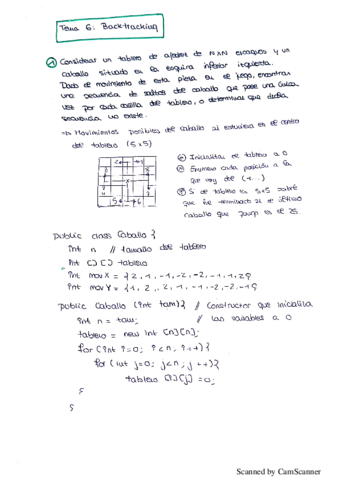 Tema 6: Backtracking
① Considerar un tablero de ajedrez de NxN escaques y un
caballo situado en la esquina inferior izquierda.
Dado el movimiento de esta pieza en el juego, encontrar
una secuencia de saltos del caballo que pase una única
vez por cada casilla del tablero, o determinar que dicha
secuencia no existe.
=> Movimientos posibles del caballo al estar en el centro
del tablero (5x5)
Inicializar el tablero a 0
Enumero cada posición a la
que voy de (1...)
Si de tablero es 5x5 sabré
que he terminado si el último
caballo que pongo es el 25
public class Caballo {
int n // tamaño del tablero
int [][] tablero
int movX = {2, 1, -1, -2, -2, -1, 1, 2}
int movY = {1, 2, 2, 1, -1, -2, -2, -1}
public Caballo (int tam) { // Constructor que inicializa
int n = tam; // las variables a 0
tablero = new int [n][n];
for (int i=0; i<n; i++) {
for (int j=0; j<n; j++) {
tablero [i][j] = 0;
}
}
Scanned by CamScanner